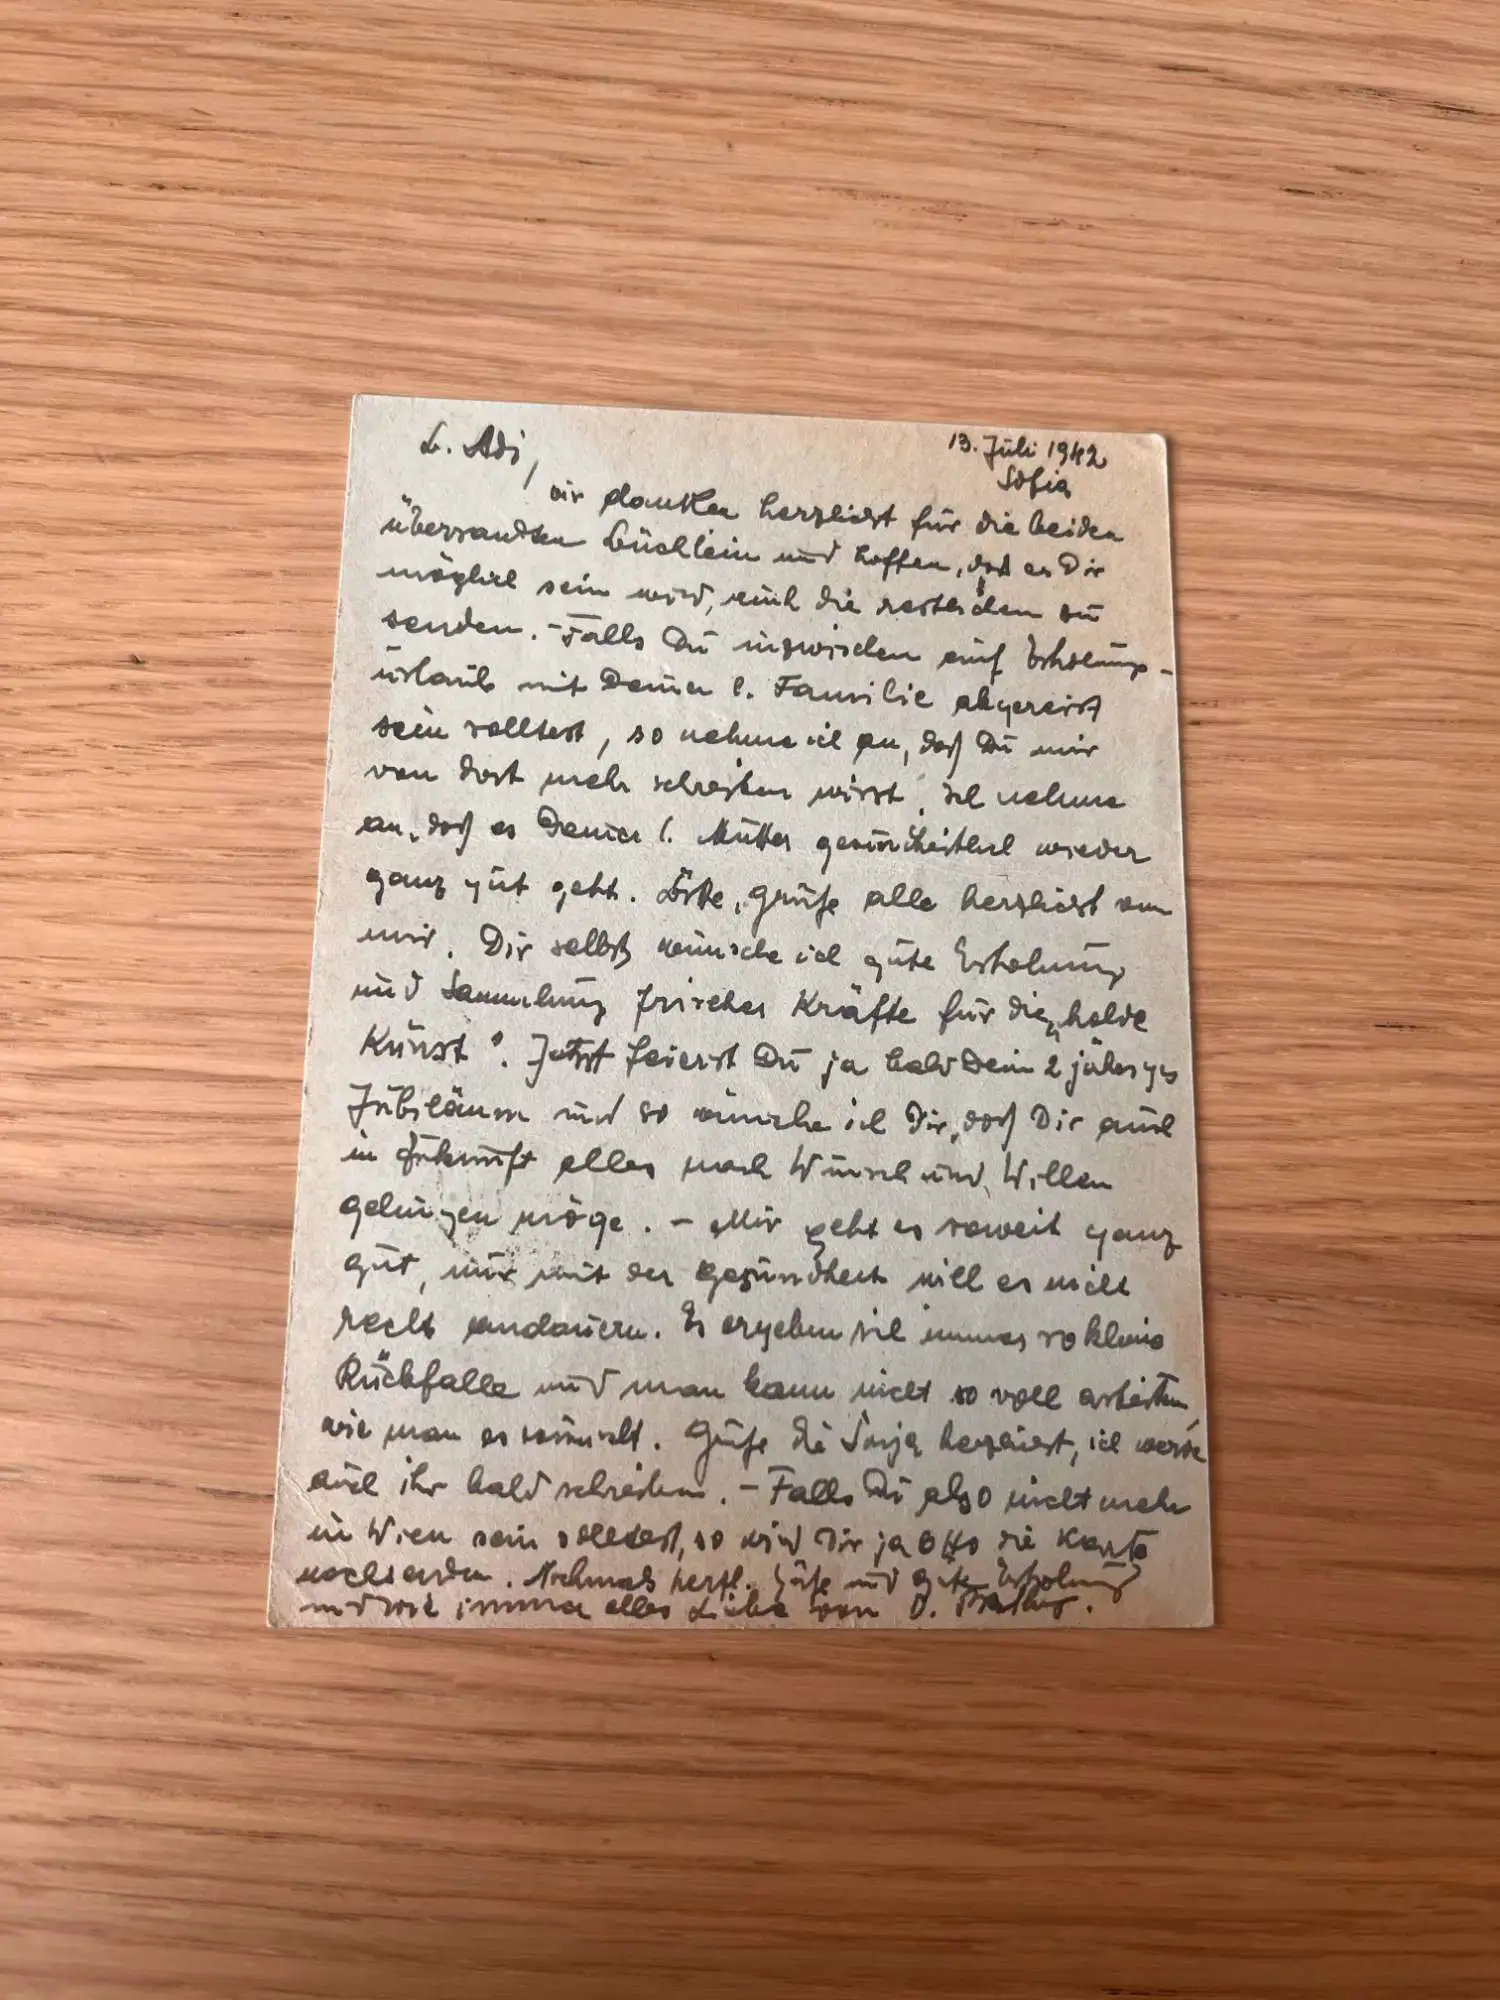 L. Adi,
13. Juli 1942
Sofia
wir danken herzlichst für die beiden
übersandten Büchlein und hoffen, daß es Dir
möglich sein wird, auch die restlichen zu
senden. – Falls Du inzwischen auf Erholungs-
urlaub mit Deiner l. Familie abgereist
sein solltest, so nehme ich an, daß Du mir
von dort mehr schreiben wirst, ich nehme
an, daß es Deiner l. Mutter gesundheitlich wieder
ganz gut geht. Bitte, grüße alle herzlichst von
mir. Dir selbst wünsche ich gute Erholung
und Sammlung frischer Kräfte für die „holde
Kunst". Jetzt feierst Du ja bald Dein 2 jähriges
Jubiläum und so wünsche ich Dir, daß Dir auch
in Zukunft alles nach Wunsch und Willen
gelingen möge. – Mir geht es soweit ganz
gut, nur mit der Gesundheit will es nicht
recht andauern. Es ergeben sich immer so kleine
Rückfälle und man kann nicht so voll arbeiten,
wie man es wünscht. Grüße die herzlichst, ich werde
auch ihr bald schreiben. – Falls Du also nicht mehr
in Wien sein solltest, so wird Dir ja Otto die Karte
nachsenden. Nochmals herzl. Grüße und gute Erholung
und wie immer alles Liebe von D.